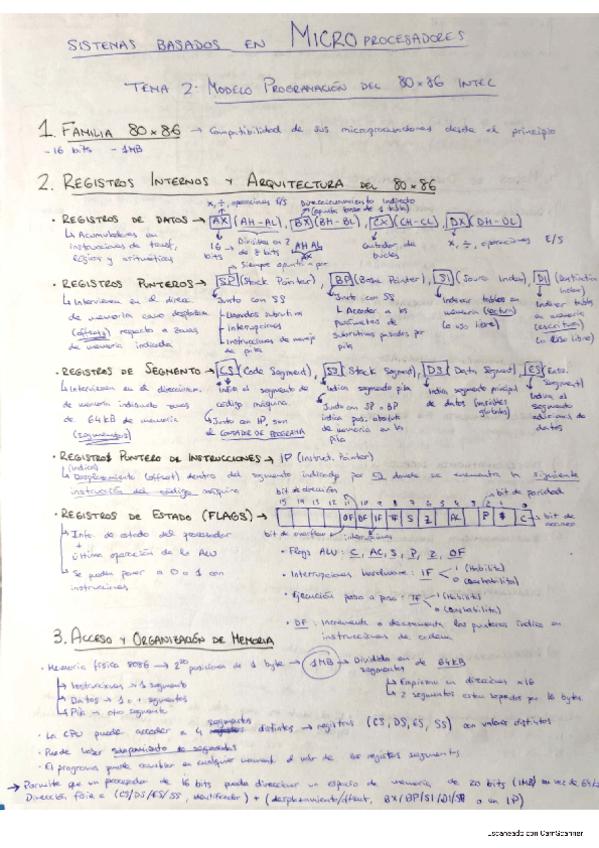 SISTEMAS BASADOS EN MICROPROCESADORES
TEMA 2. MODELO PROGRAMACIÓN DEL 80x86 INTEL
1. FAMILIA 80x86 → Compatibilidad de sus microprocesadores desde el principio
- 16 bits - 1MB
2. REGISTROS INTERNOS Y ARQUITECTURA DEL 80x86
x, ÷, operaciones E/S Direccionamiento indirecto
· REGISTROS DE DATOS → AX (AH-AL), BX (BH-BL), CX (CH-CL), DX (DH-DL)
↳ Acumuladores en
instrucciones de transf,
lógicas y aritméticas
16 bits → Divididos en 2 de 8 bits AH AL AX
Contador de bucles
x, ÷, operaciones E/S
Siempre apunta a
· REGISTROS PUNTEROS → SP (Stack Pointer), BP (Base Pointer), SI (Source Index), DI (Destination Index)
↳ Intervienen en el direcc.
de memoria como desplaza
(offsets) respecto a zonas
de memoria indicada
Junto con SS
↳ Llamadas subrutinas
↳ Interrupciones
↳ Instrucciones de manejo
de pila
Junto con SS
↳ Acceder a los
parámetros de
subrutinas pasados por
pila
Indexar tablas en
memoria (lectura)
(o uso libre)
Indexar tablas
en memoria
(escritura)
(o uso libre)
· REGISTROS DE SEGMENTO → CS (Code Segment), SS (Stack Segment), DS (Data Segment), ES (Extra Segment)
↳ Intervienen en el direccionam.
de memoria indicando zonas
de 64kB de memoria
(segmentos)
Indica el segmento de
código máquina.
↳ Junto con IP, son
el CONTADOR DE PROGRAMA
Indica segmento pila
Junto con SP o BP
indica pos. absoluta
de memoria en la
pila
Indica segmento principal
de datos (variables
globales)
Indica el
segmento
adicional de
datos
· REGISTRO PUNTERO DE INSTRUCCIONES → IP (Instruct. Pointer)
(indica)
↳ Desplazamiento (offset) dentro del segmento indicado por donde se encuentra la siguiente
instrucción del código máquina
bit de dirección
bit de paridad
15 14 13 12 11 10 9 8 7 6 5 4 3 2 1 0
· REGISTROS DE ESTADO (FLAGS) → OF DF IF TF S Z AC P C → bit de acarreo
↳ Info. de estado del procesador
+
última operación de la ALU
↳ Se pueden poner a 0 o 1 con
instrucciones
bit de overflow
interrupciones
· Flags ALU: C, AC, S, P, Z, OF
· Interrupciones hardware: IF
1 (Habilita)
0 (Deshabilita)
· Ejecución paso a paso: TF
1 (Habilita)
0 (Deshabilita)
· DF: Incrementa o decrementa los punteros índice en
instrucciones de cadena
3. ACCESO Y ORGANIZACIÓN DE MEMORIA
· Memoria física 8086 → 2²⁰ posiciones de 1 byte → 1MB → Dividida en segmentos de 64kB
↳ Instrucciones → 1 segmento
↳ Datos → 1 o + segmentos
↳ Pila → otro segmento
↳ Empiezan en direcciones x16
↳ 2 segmentos estan separados por 16 bytes.
· La CPU puede acceder a 4 segmentos distintos → registros (CS, DS, ES, SS) con valores distintos
· Puede haber solapamiento de segmentos
· El programa puede cambiar en cualquier momento el valor de los registros segmentos
→ Permite que un procesador de 16 bits pueda direccionar un espacio de memoria de 20 bits (1MB) en vez de 64k
Dirección física = (CS/DS/ES/SS, identificador) + (desplazamiento/offset, BX/BP/SI/DI/SP o un IP)
Escaneado con CamScanner